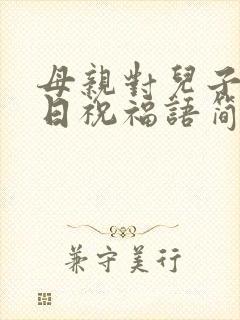 母親對兒子
日祝福語簡
兼守美行